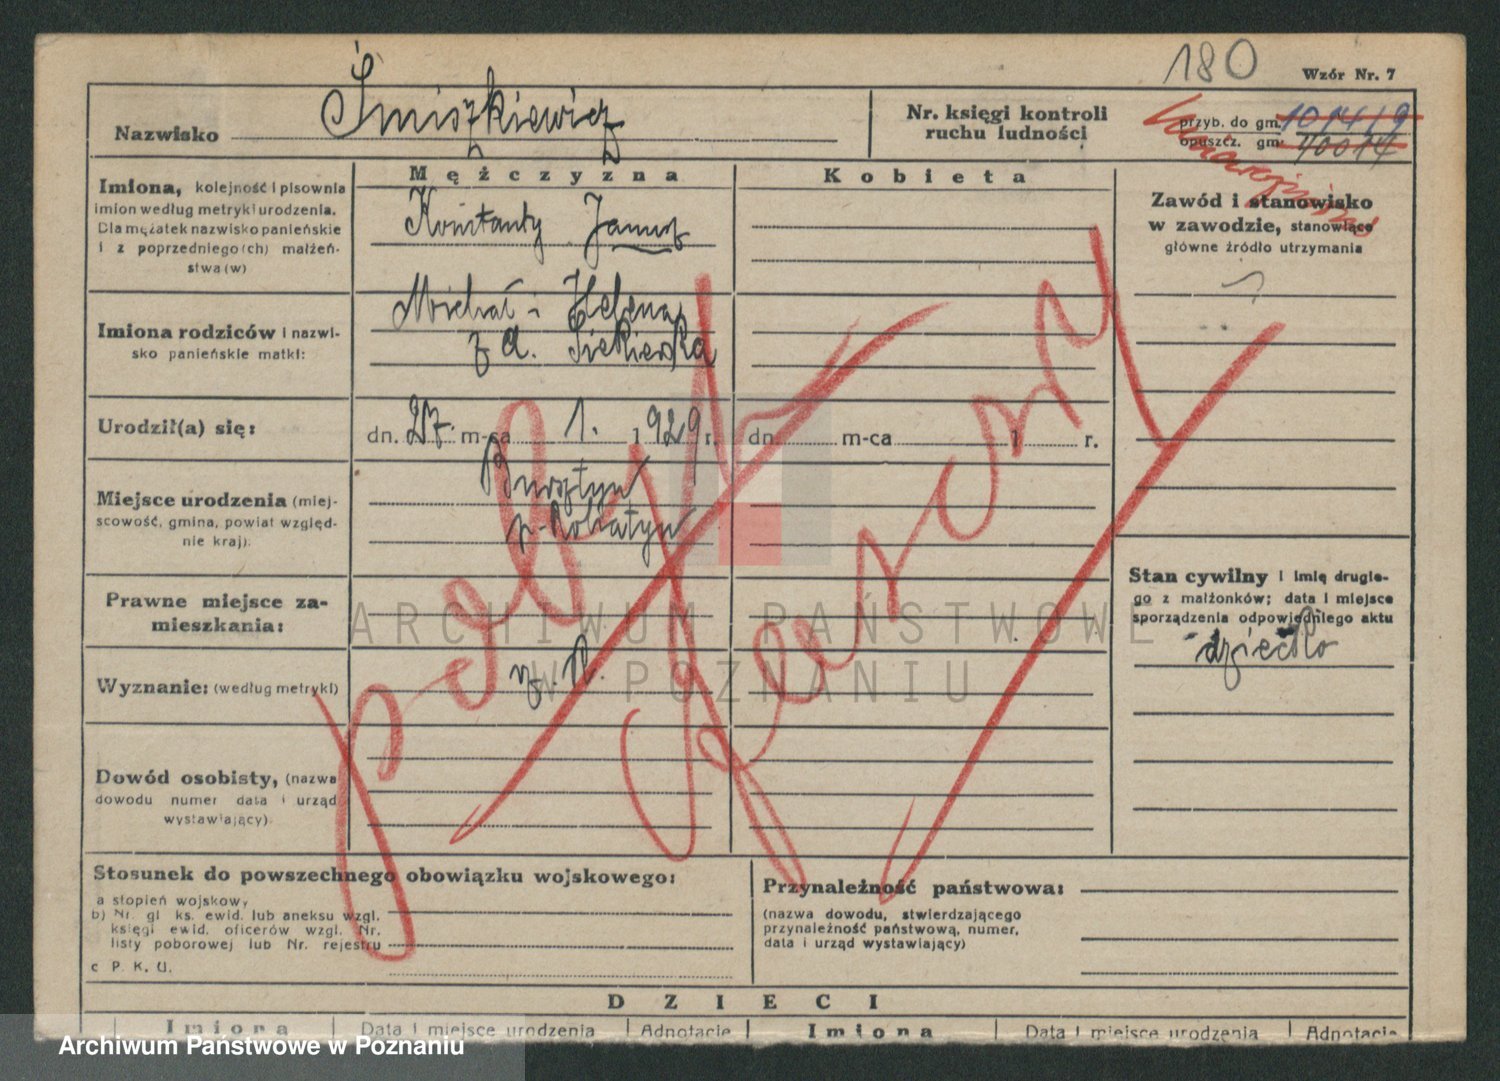 180
Wzór Nr. 7
Nazwisko Śmiszkiewicz
Nr. księgi kontroli
ruchu ludności
przyb. do gm. 10141/9
opuszcz. gm. 40014
Mężczyzna
Kobieta
Imiona, kolejność i pisownia
imion według metryki urodzenia.
Dla mężatek nazwisko panieńskie
i z poprzedniego(ch) małżeń-
stwa(w)
Konstanty Janusz
Zawód i stanowisko
w zawodzie, stanowiące
główne źródło utrzymania
Imiona rodziców i nazwi-
sko panieńskie matki:
Michał i Helena
z d. Siekierska
Urodził(a) się:
dn. 27. m-ca 1. 1929 r.
dn. m-ca 1 r.
Miejsce urodzenia (miej-
scowość, gmina, powiat względ-
nie kraj):
Bursztyn
p. Rohatyn
Prawne miejsce za-
mieszkania:
Stan cywilny i imię drugie-
go z małżonków; data i miejsce
sporządzenia odpowiedniego aktu
dziecko
Wyznanie: (według metryki)
rz. k.
pobyt
Dowód osobisty, (nazwa
dowodu numer data i urząd
wystawiający)
Stosunek do powszechnego obowiązku wojskowego:
a stopień wojskowy
b) Nr. gl ks. ewid. lub aneksu wzgl.
księgi ewid. oficerów wzgl. Nr.
listy poborowej lub Nr. rejestru
c P. K. U.
Przynależność państwowa:
(nazwa dowodu, stwierdzającego
przynależność państwową, numer,
data i urząd wystawiający)
DZIECI
Imiona Data i miejsce urodzenia Adnotacje Imiona Data i miejsce urodzenia Adnotacje
ARCHIWUM PAŃSTWOWE
W POZNANIU
Archiwum Państwowe w Poznaniu